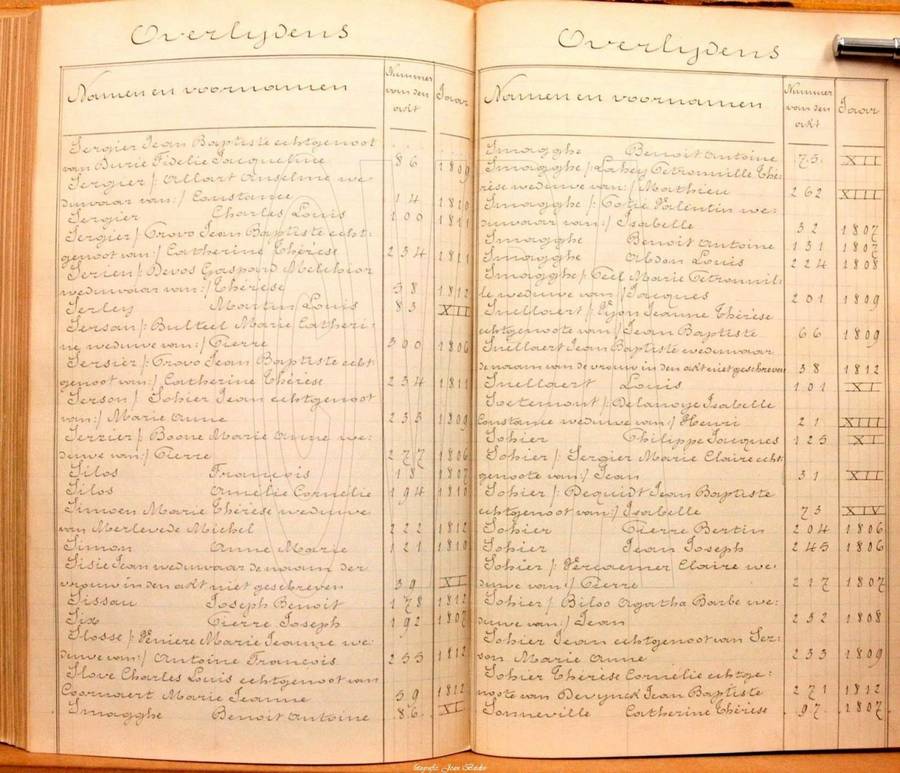 Overlijdens
Namen en voornamen
Nummer van den akt
Jaar
Sergier Jean Baptiste echtgenoot
van Durie Fidelie Jacqueline 86 1809
Sergier /: Allart Anselme we:
duwaar van :/ Constance 14 1810
Sergier Charles Louis 100 1811
Sergier / Crovo Jean Baptiste echt:
genoot van :/ Catherine Thérèse 234 1811
Serien /: Devos Gaspard Melchior
weduwaar van :/ Thérèse 38 1812
Serley Martin Louis 83 XII
Sersan /: Bulteel Marie Catheri:
ne weduwe van :/ Pierre 300 1806
Sersier /: Crovo Jean Baptiste echt:
genoot van :/ Catherine Thérèse 234 1811
Serson / Sohier Jean echtgenoot
van :/ Marie Anne 233 1809
Serzier /: Boone Marie Anne we:
duwe van :/ Pierre 277 1806
Silos François 18 1807
Silos Amélie Cornélie 194 1810
Simoen Marie Thérèse weduwe
van Merlevede Michel 222 1812
Simon Anne Marie 121 1810
Sisie Jean weduwaar de naam der
vrouw in den akt niet geschreven 39 XI
Sissau Joseph Benoit 178 1812
Six Pierre Joseph 192 1807
Slosse /: Veniere Marie Jeanne we:
duwe van :/ Antoine François 255 1812
Slove Charles Louis echtgenoot van
Coornaert Marie Jeanne 59 1812
Smagghe Benoit Antoine 86 XI
Overlijdens
Namen en voornamen
Nummer van den akt
Jaar
Smagghe Benoit Antoine 75 XII
Smagghe /: Lahey Petronille Thé:
rèse weduwe van :/ Mathieu 262 XIII
Smagghe /: Valentin we:
duwaar van :/ Isabelle 32 1807
Smagghe Benoit Antoine 131 1807
Smagghe Abdon Louis 224 1808
Smagghe / Teel Marie Petronil:
le weduwe van :/ Jacques 201 1809
Snellaert /: Jeanne Thérèse
echtgenoote van :/ Jean Baptiste 66 1809
Snellaert Jean Baptiste weduwaar
de naam van de vrouw in den akt niet geschreven 38 1812
Snellaert Louis 101 XI
Soetemont /: Delanoye Isabelle
Constance weduwe van :/ Henri 21 XIII
Sohier Philippe Jacques 125 XI
Sohier /: Sergier Marie Claire echt:
genoote van :/ Jean 31 XII
Sohier /: Dequidt Jean Baptiste
echtgenoot van :/ Isabelle 73 XIV
Sohier Pierre Bertin 204 1806
Sohier Jean Joseph 245 1806
Sohier /: Vercaemer Claire we:
duwe van :/ Pierre 217 1807
Sohier / Biloo Agatha Barbe we:
duwe van :/ Jean 252 1808
Sohier Jean echtgenoot van Ser:
son Marie Anne 233 1809
Sohier Thérèse Cornélie echtge:
noote van Dewynck Jean Baptiste 271 1812
Sonneville Catherine Thérèse 97 1807